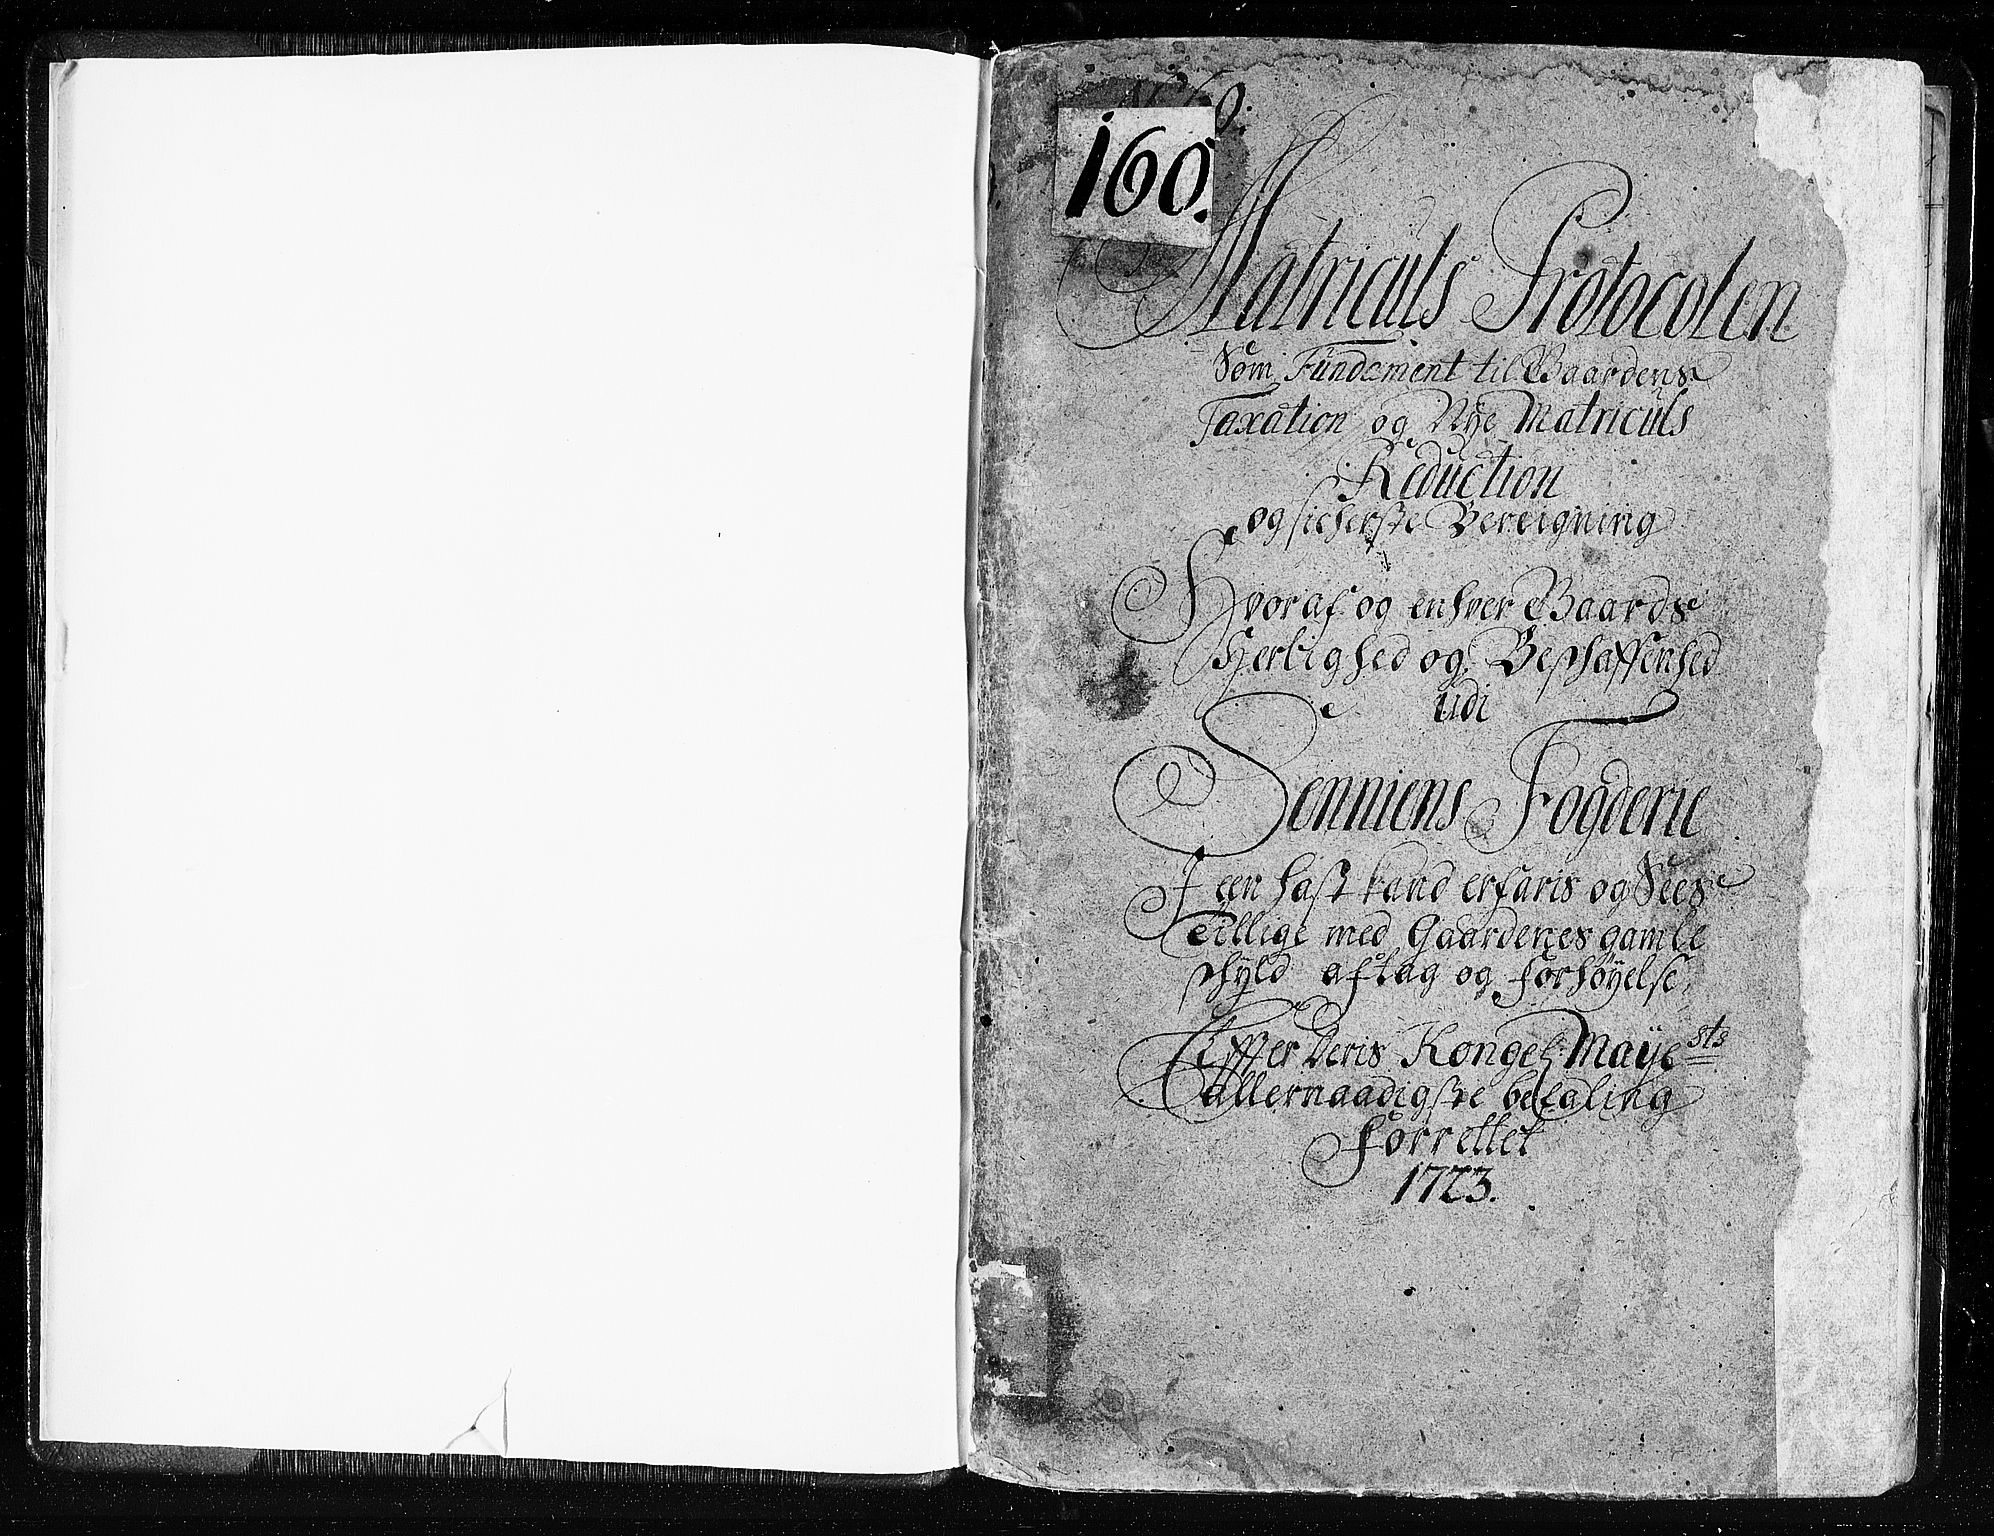 160.
Matriculs Protocolen
Som Fundament til Gaardens
Taxation og Nye Matriculs
Reduction
og sicherste Bereigning
Hvoraf og enhver Gaards
Herlighed og Beschaffenhed
udi
Senniens Fogderie
I een hast kand erfaris og Sees
Tillige med Gaardenes gamle
schyld aftag og forhøyelse
Effter Deris Kongel: Mayests
allernaadigste befaling
forrettet
1723.